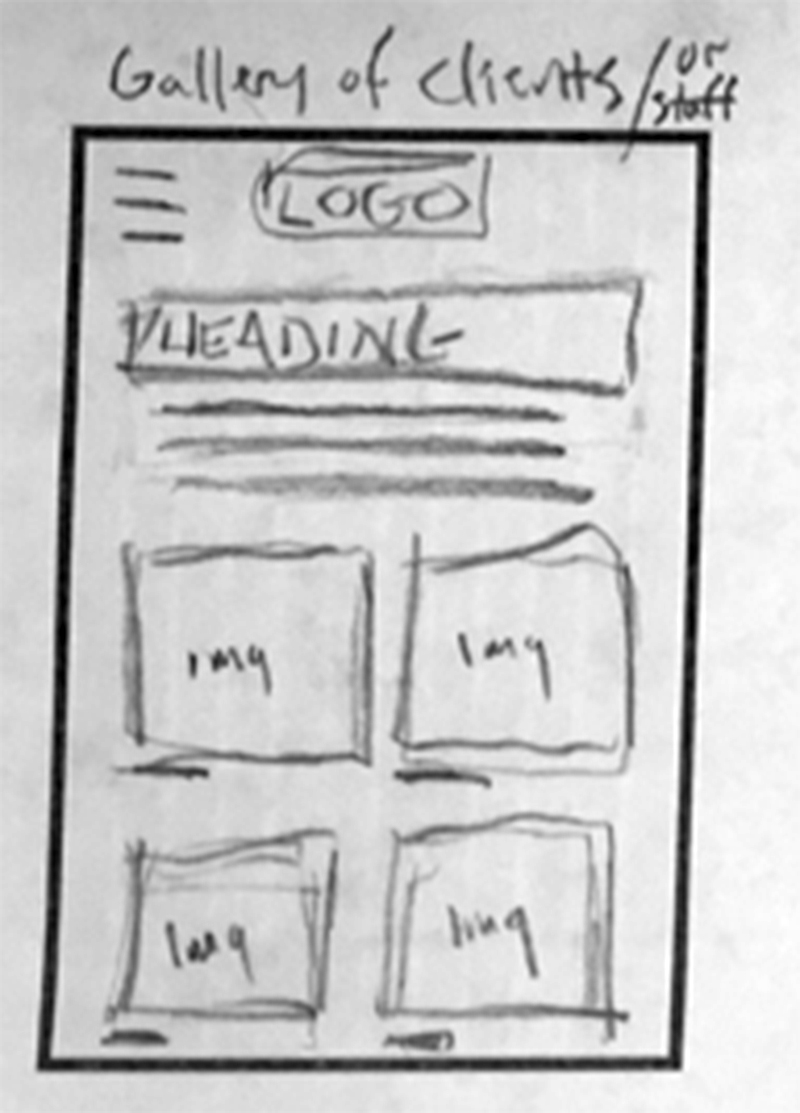 Gallery of clients / or
staff
LOGO
HEADING
img img
Img img